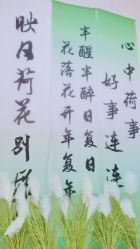 心中荷事
好事连连
半醒半醉日复日
花落花开年复年
映日荷花别样